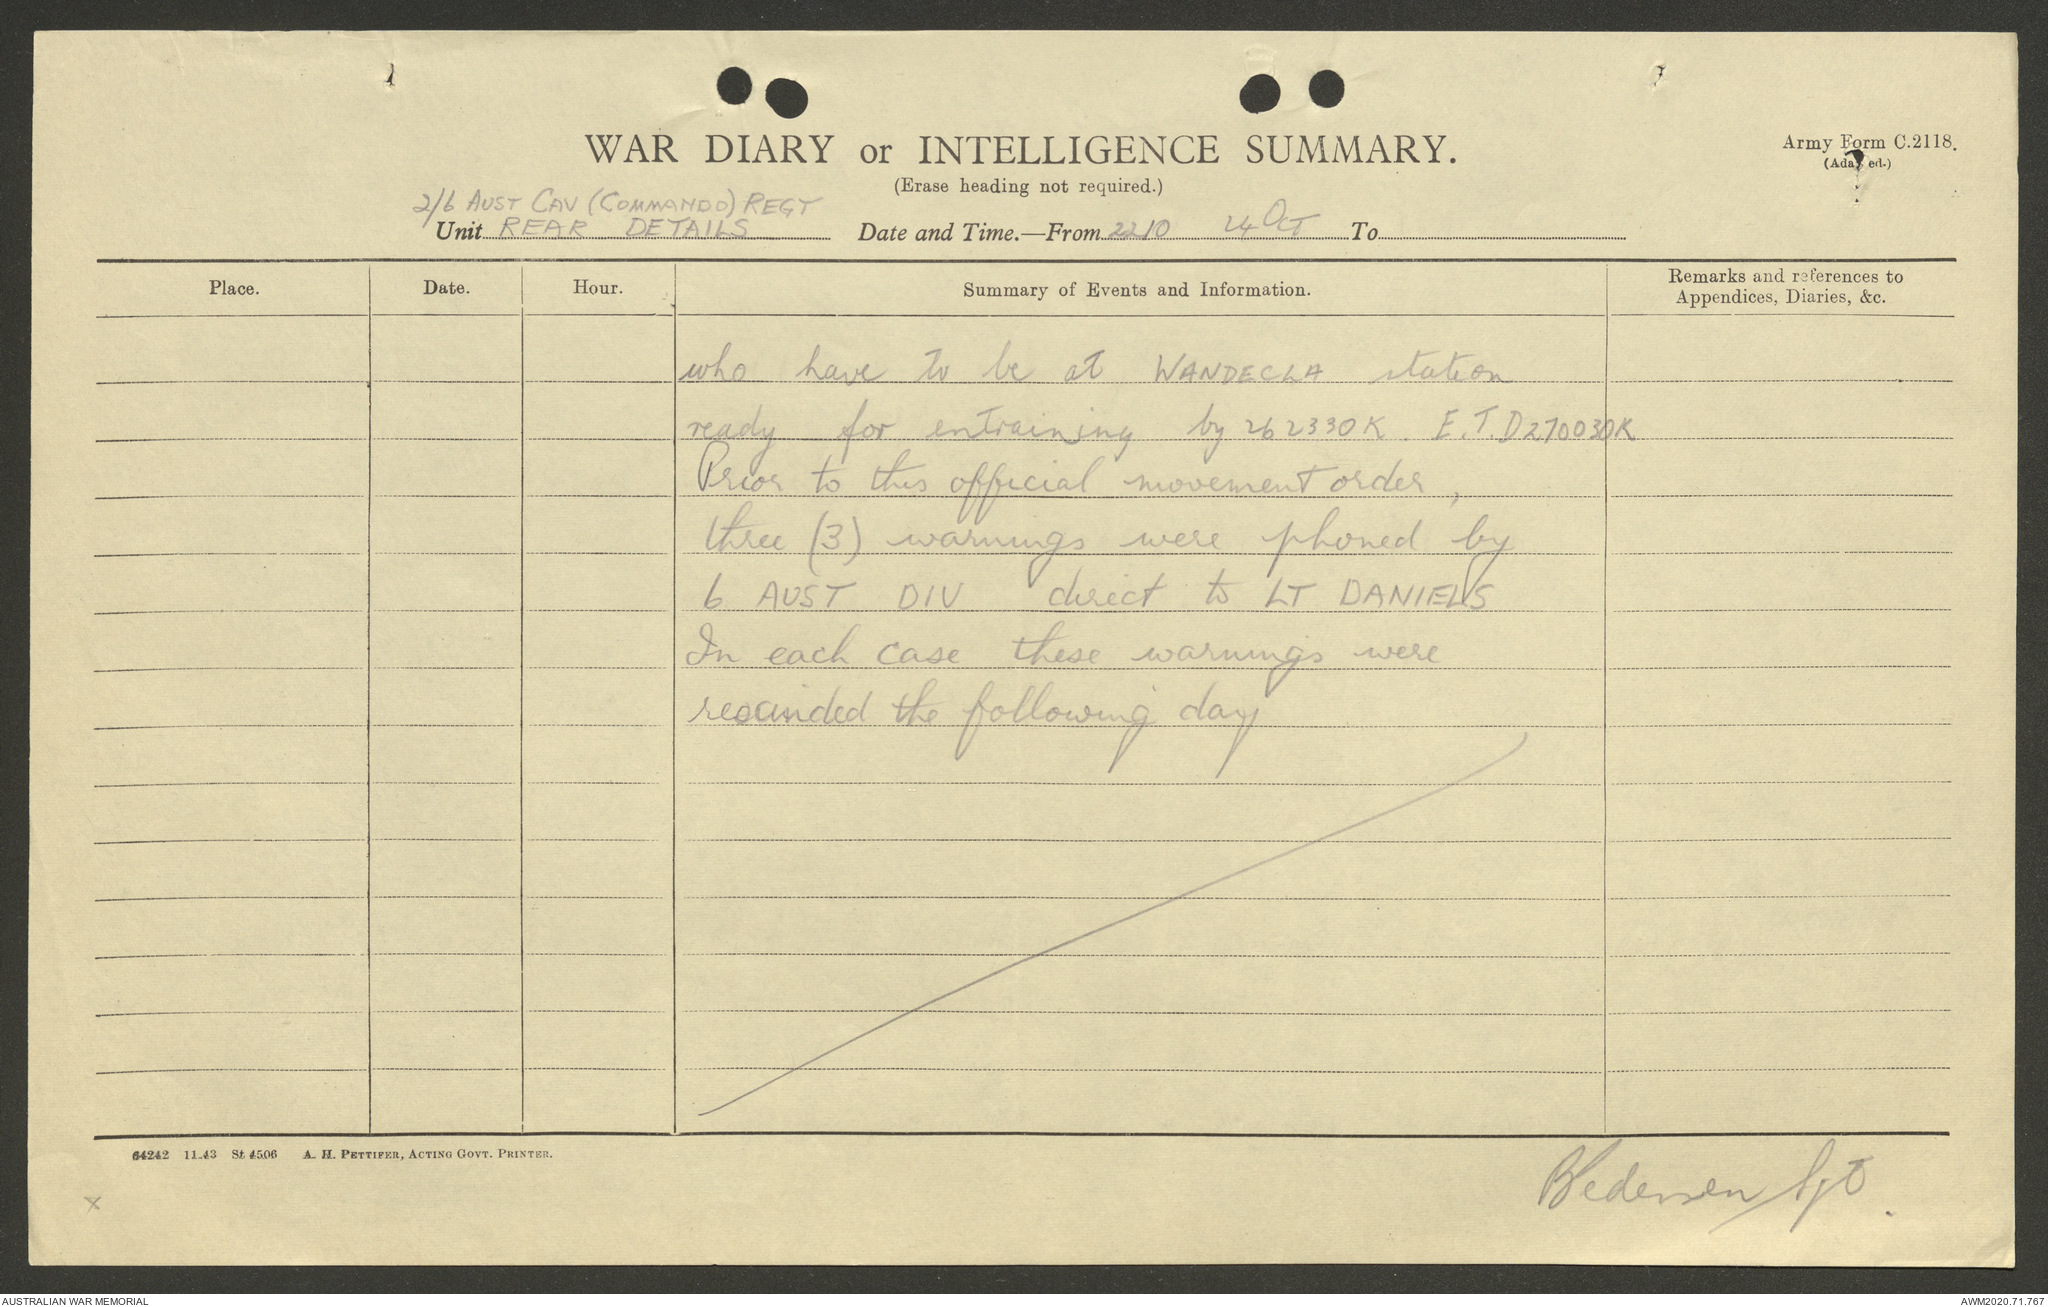 WAR DIARY or INTELLIGENCE SUMMARY.
Army Form C.2118.
(Erase heading not required.)
2/6 AUST CAV (COMMANDO) REGT
Unit REAR DETAILS Date and Time.—From 2210 24 OCT To
Place. Date. Hour. Summary of Events and Information. Remarks and references to
Appendices, Diaries, &c.
who have to be at WANDECLA station
ready for entraining by 262330K. E.T.D 270030K
Prior to this official movement order,
three (3) warnings were phoned by
6 AUST DIV direct to LT DANIELS
In each case these warnings were
rescinded the following day
64242 11-43 St 4506 A. H. PETTIFER, ACTING GOVT. PRINTER.
Sgt
x
AUSTRALIAN WAR MEMORIAL
AWM2020.71.767